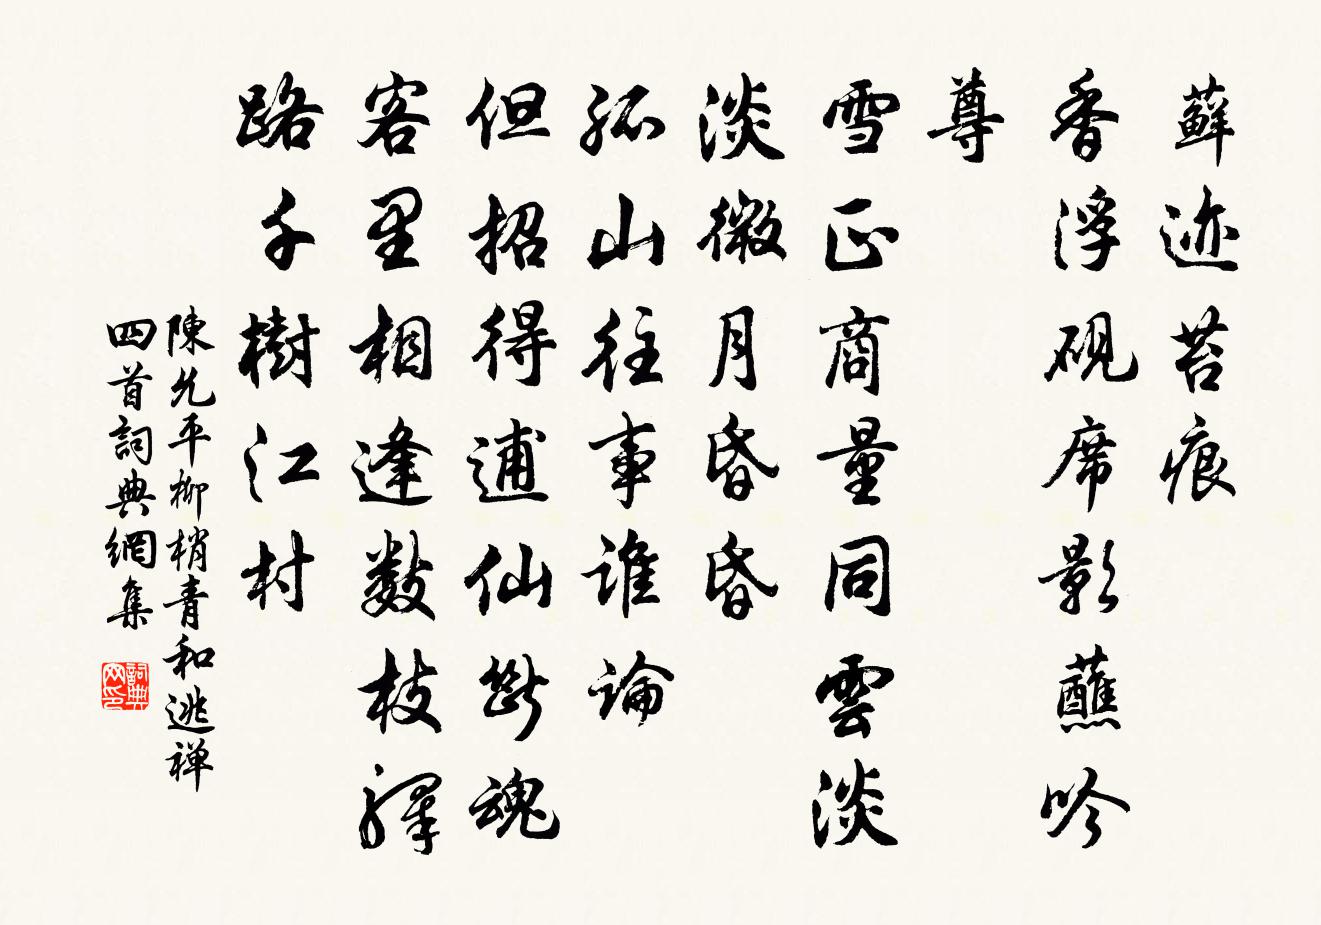 蘚迹苔痕
香浮硯席影蘸吟
尊
雪正商量同雲淡
淡微月昏昏
孤山往事誰論
但招得逋仙斷魂
客里相逢數枝驛
路千樹江村
陳允平柳梢青和逃禅
四首詞典網集
詞典網印